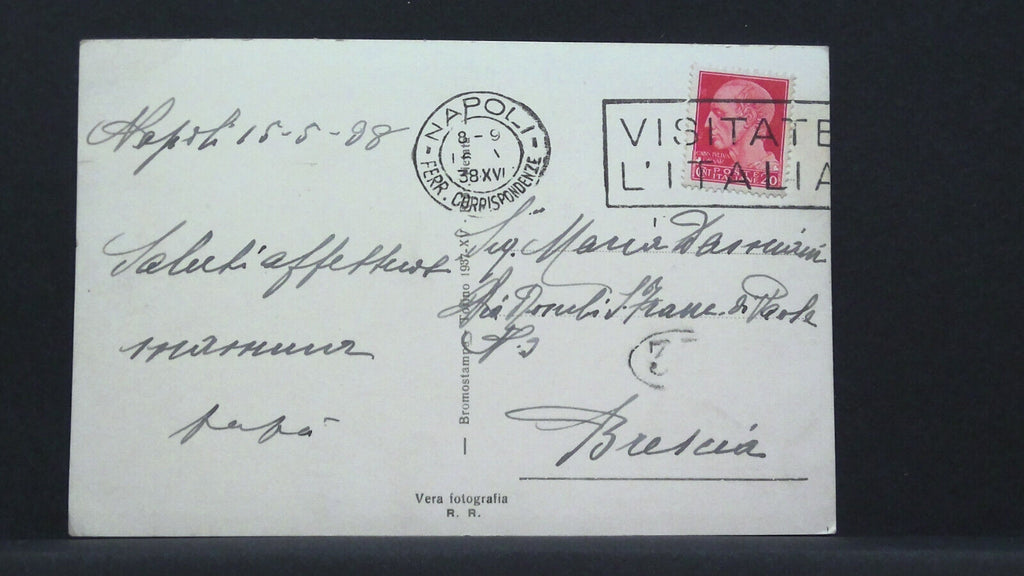 Napoli 15-5-38
Saluti affettuosi
mamma
papà
NAPOLI
8-9
38·XVI
FERR. CORRISPONDENZE
VISITATE
L'ITALIA
20
Sig. Maria
Via S. Franc. di Paola
N. 3
Brescia
3
— Bromostampa 1937-XV
Vera fotografia
R. R.